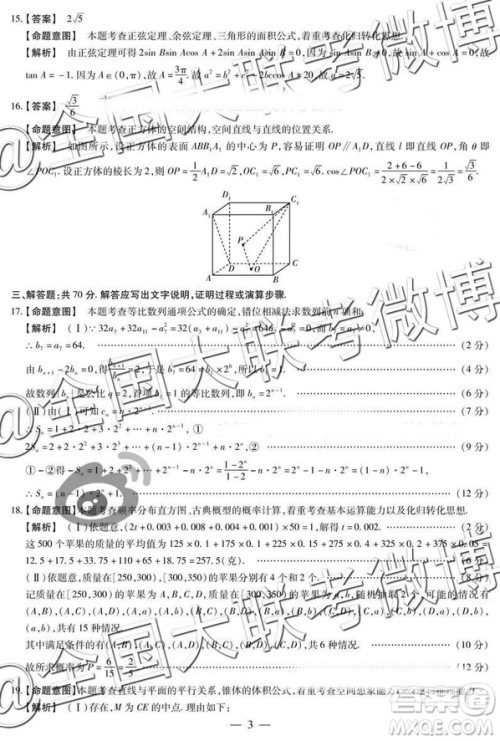 15.【答案】 2√5
【命题意图】 本题考查正弦定理、余弦定理、三角形的面积公式,着重考查化归转化思想.
【解析】 由正弦定理可得 2sin Bsin Acos A
tan A = -1. 因为 A∈(0,π),故 A = 3π/4. 故 a² = b² + c² - 2bccos A = 20, 故 a = 2√5.
16.【答案】 √3/6
【命题意图】 本题考查正方体的空间结构,空间直线与直线的位置关系.
【解析】 如图所示,设正方体的表面 ABB₁A₁ 的中心为 P,容易证明 OP∥A₁D,故直线 l 即直线 OP,角 θ 即
∠POC₁. 设正方体的棱长为 2,则 OP = 1/2 A₁D = √2, OC₁ = √6, PC₁ = √6. cos∠POC₁ = (2+6-6)/(2×√2×√6) = 1/(2√3) = √3/6.
D₁
C₁
A₁
B₁
P
D
C
O
A
B
三、解答题:共 70 分. 解答应写出文字说明,证明过程或演算步骤.
17.【命题意图】 本题考查等比数列通项公式的确定,错位相减法求数列前 n 项和.
【解析】 (Ⅰ)
∴ b₇ = a₇ = 64. (2 分)
(4 分)
故数列{bₙ}是公比 q = 2,首项 b₁ = 1 的等比数列,即 bₙ = 2ⁿ⁻¹. (6 分)
(Ⅱ)由(Ⅰ)可知 cₙ = n·2ⁿ⁻¹,
∴ Sₙ = 1 + 2·2 + 3·2² + … + n·2ⁿ⁻¹ ①
2Sₙ = 2 + 2·2² + 3·2³ + … + n·2ⁿ ② (9 分)
①-②得 -Sₙ = 1 + 2 + 2² + … + 2ⁿ⁻¹ - n·2ⁿ = (1-2ⁿ)/(1-2) - n·2ⁿ = 2ⁿ - 1 - n·2ⁿ,
(12 分)
18.【命题意图】 本题考查频率分布直方图,古典概型的概率,着重考查基本运算能力以及化归转化思想.
【解析】 (Ⅰ)依题意,(2t + 0.003 + 0.008 + 0.004 + 0.001)×50 = 1,解得 t = 0.002. (2 分)
这 500 个苹果的质量的平均值为 125×0.1 + 175×0.1 + 225×0.15 + 275×0.4 + 325×0.2 + 375×0.05 =
12.5 + 17.5 + 33.75 + 110 + 65 + 18.75 = 257.5(克). (6 分)
(Ⅱ)依题意,质量在[250,300),[300,350)的苹果分别有 4 个和 2 个. (8 分)
记质量在[250,300)的苹果为 A,B,C,D,质量在[300,350)的苹果为 a,b,随机抽取 2 个,可能的情况有
(A,B),(A,C),(A,D),(A,a),(A,b),(B,C),(B,D),(B,a),(B,b),(C,D),(C,a),(C,b),(D,a),(D,b),
(a,b),共有 15 种情况.
其中满足条件的有(A,B),(A,C),(A,D),(B,C),(B,D),(C,D),共 6 种情况,
故所求概率为 P = 6/15 = 2/5. (12 分)
19.【命题意图】 本题考查直线与平面的平行关系、锥体的体积公式,着重考查空间想象能力
【解析】 (Ⅰ)存在,M 为 CE 的中点. 理由如下:
— 3 —
@全国大联考微博
@全国大联考微博